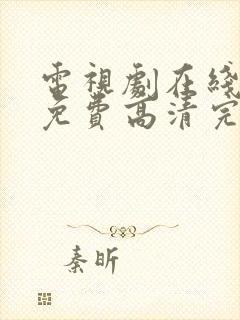 電視劇在綫
免費高清完
秦昕